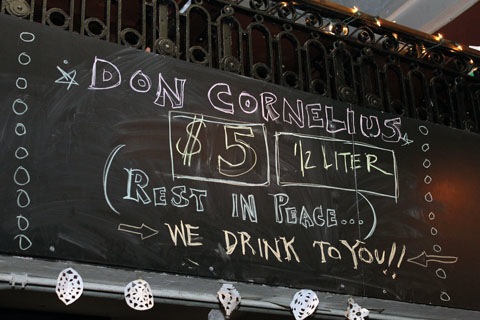 DON CORNELIUS
$5 1/2 LITER
(REST IN PEACE...)
WE DRINK TO YOU!!